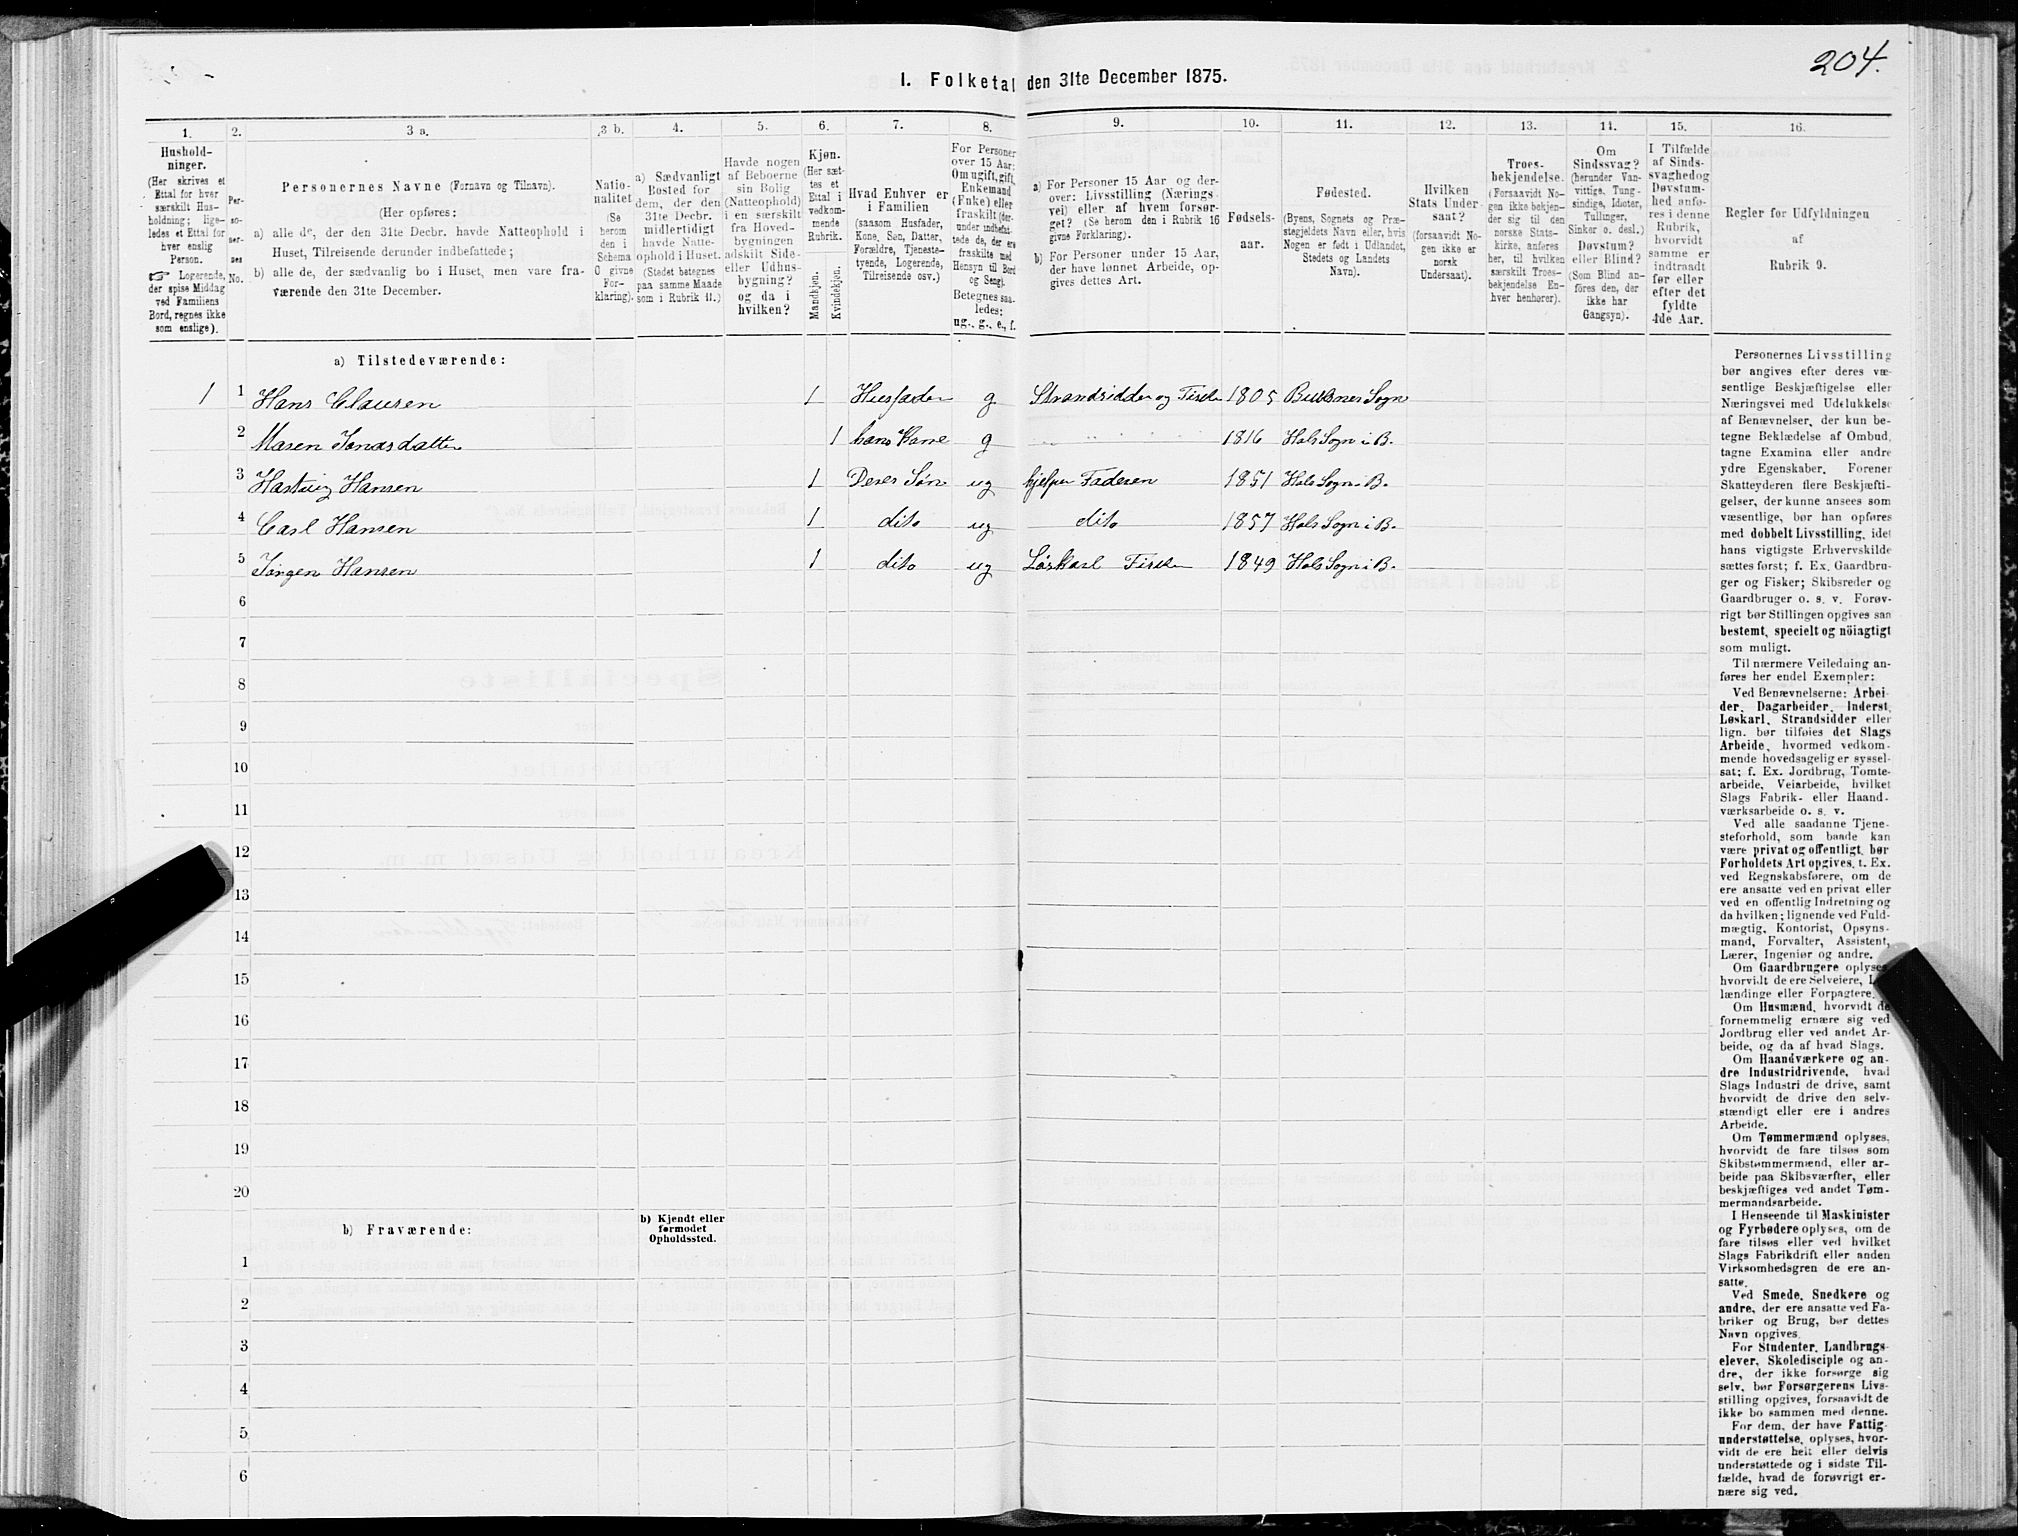 204.
1. Folketal den 31te December 1875.
1.
Hushold-
ninger.
(Her skrives et
Ettal for hver
særskilt Hus-
holdning; lige-
ledes et Ettal for
hver enslig
Person.
☞ Logerende,
der spise Middag
ved Familiens
Bord, regnes ikke
som enslige).
2.
Per-
so-
ner-
nes
No.
3 a.
Personernes Navne (Fornavn og Tilnavn).
(Her opføres:
a) alle de, der den 31te Decbr. havde Natteophold i
Huset, Tilreisende derunder indbefattede;
b) alle de, der sædvanlig bo i Huset, men vare fra-
værende den 31te December.
3 b.
Natio-
nalitet
(Se
herom
den i
Schema
O givne
For-
klaring).
4.
a) Sædvanligt
Bosted for
dem, der den
31te Decbr.
midlertidigt
havde Natte-
ophold i Huset.
(Stedet betegnes
paa samme Maade
som i Rubrik 11.)
5.
Havde nogen
af Beboerne
sin Bolig
(Natteophold)
i en særskilt
fra Hoved-
bygningen
adskilt Side-
eller Udhus-
bygning?
og da i
hvilken?
6.
Kjøn.
(Her sæt-
tes et
Ettal i
vedkom-
mende
Rubrik.
Mandkjøn.
Kvindekjøn.
7.
Hvad Enhver er
i Familien
(saasom Husfader,
Kone, Søn, Datter,
Forældre, Tjeneste-
tyende, Logerende,
Tilreisende osv.)
8.
For Personer
over 15 Aar:
Om ugift, gift,
Enkemand
(Enke) eller
fraskilt (der-
under indbefat-
tede de, der ere
fraskilte med
Hensyn til Bord
og Seng).
Betegnes saa-
ledes:
ug., g., e., f.
9.
a) For Personer 15 Aar og der-
over: Livsstilling (Nærings-
vei) eller af hvem forsør-
get? (Se herom den i Rubrik 16
givne Forklaring).
b) For Personer under 15 Aar,
der have lønnet Arbeide, op-
gives dettes Art.
10.
Fødsels-
aar.
11.
Fødested.
(Byens, Sognets og Præ-
stegjeldets Navn eller, hvis
Nogen er født i Udlandet,
Stedets og Landets
Navn).
12.
Hvilken
Stats Under-
saat?
(forsaavidt No-
gen ikke er
norsk
Undersaat).
13.
Troes-
bekjendelse.
(Forsaavidt No-
gen ikke bekjen-
der sig til den
norske Stats-
kirke, anføres
her, til hvilken
særskilt Troes-
bekjendelse En-
hver henhører).
14.
Om
Sindssvag?
(herunder Van-
vittige, Tung-
sindige, Idioter,
Tullinger,
Sinker o. desl.)
Døvstum?
eller Blind?
(Som Blind an-
føres den, der
ikke har
Gangsyn).
15.
I Tilfælde
af Sinds-
svaghedog
Døvstum-
hed anfø-
res i denne
Rubrik,
hvorvidt
samme er
indtraadt
før eller
efter det
fyldte
4de Aar.
16.
Regler for Udfyldningen
af
Rubrik 9.
a) Tilstedeværende:
1 1 Hans Clausen 1 Husfader g Strandsidder og Fisker 1805 Buksnes Sogn
2 Maren Jonasdatter 1 hans Kone g 1816 Hols Sogn i B.
3 Hartvig Hansen 1 Deres Søn ug hjelper Faderen 1851 Hols Sogn i B.
4 Carl Hansen 1 dito ug dito 1857 Hols Sogn i B.
5 Jørgen Hansen 1 dito ug Løskarl Fisker 1849 Hols Sogn i B.
6
7
8
9
10
11
12
13
14
15
16
17
18
19
20
b) Fraværende:
b) Kjendt eller
formodet
Opholdssted.
1
2
3
4
5
6
Personernes Livsstilling
bør angives efter deres væ-
sentlige Beskjæftigelse eller
Næringsvei med Udelukkelse
af Benævnelser, der kun be-
tegne Beklædelse af Ombud,
tagne Examina eller andre
ydre Egenskaber. Forener
Skatteyderen flere Beskjæfti-
gelser, der kunne ansees som
væsentlige, bør han opføres
med dobbelt Livsstilling, idet
hans vigtigste Erhvervskilde
sættes først; f. Ex. Gaardbru-
ger og Fisker; Skibsreder og
Gaardbruger o. s. v. Forøv-
rigt bør Stillingen opgives saa
bestemt, specielt og nöiagtigt
som muligt.
Til nærmere Veiledning an-
føres her endel Exempler:
Ved Benævnelserne: Arbei-
der, Dagarbeider, Inderst,
Løskarl, Strandsidder eller
lign. bør tilføies det Slags
Arbeide, hvormed vedkom-
mende hovedsagelig er syssel-
sat; f. Ex. Jordbrug, Tomte-
arbeide, Veiarbeide, hvilket
Slags Fabrik- eller Haand-
værksarbeide o. s. v.
Ved alle saadanne Tjene-
steforhold, som baade kan
være privat og offentligt, bør
Forholdets Art opgives, t. Ex.
ved Regnskabsførere, om de
ere ansatte ved en privat eller
ved en offentlig Indretning og
da hvilken; lignende ved Fuld-
mægtig, Kontorist, Opsyns-
mand, Forvalter, Assistent,
Lærer, Ingeniør og andre.
Om Gaardbrugere oplyses,
hvorvidt de ere Selveiere,
lændinge eller Forpagtere.
Om Husmænd, hvorvidt de
fornemmelig ernære sig ved
Jordbrug eller ved andet Ar-
beide, og da af hvad Slags.
Om Haandværkere og an-
dre Industridrivende, hvad
Slags Industri de drive, samt
hvorvidt de drive den selv-
stændigt eller ere i andres
Arbeide.
Om Tømmermænd oplyses,
hvorvidt de fare tilsøs som
Skibstømmermænd, eller ar-
beide paa Skibsværfter, eller
beskjæftiges ved andet Tøm-
mermandsarbeide.
I Henseende til Maskinister
og Fyrbødere oplyses, om de
fare tilsøs eller ved hvilket
Slags Fabrikdrift eller anden
Virksomhedsgren de ere an-
satte.
Ved Smede, Snedkere og
andre, der ere ansatte ved Fa-
briker og Brug, bør dettes
Navn opgives.
For Studenter, Landbrugs-
elever, Skoledisciple og an-
dre, der ikke forsørge sig
selv, bør Forsørgerens Livs-
stilling opgives, forsaavidt de
ikke bo sammen med denne.
For dem, der have Fattig-
understøttelse, oplyses, hvor-
vidt de ere helt eller delvis
understøttede og i sidste Til-
fælde, hvad de forøvrigt er-
nære sig ved.